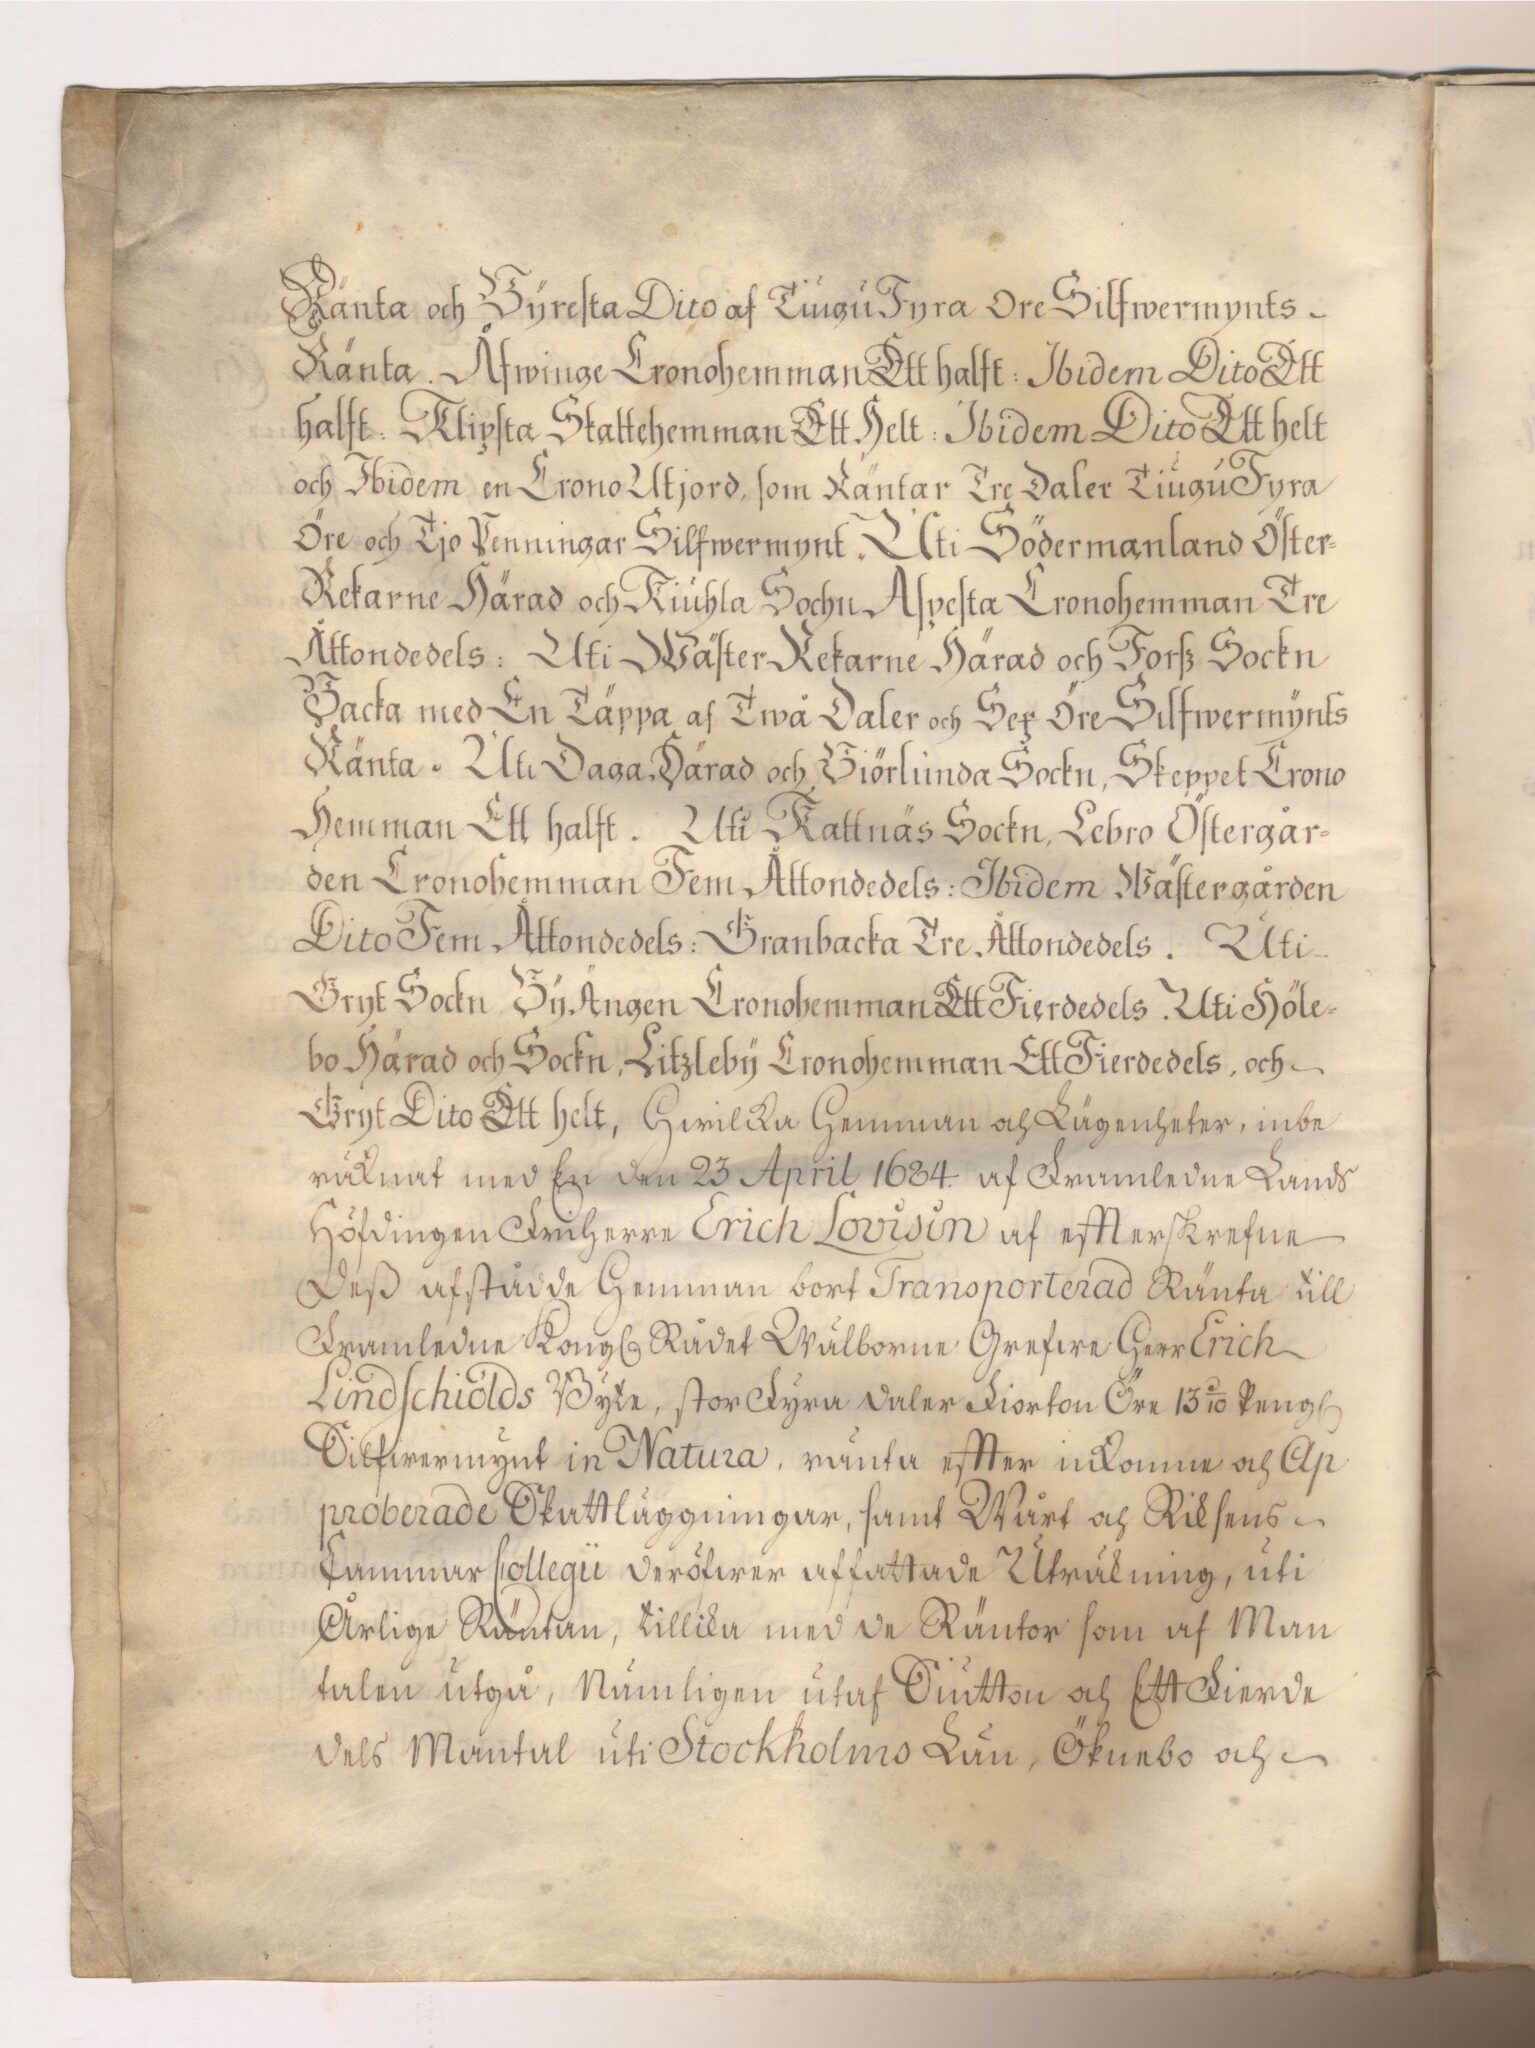 Ränta och Byresta Dito af Tiugu Fyra Öre Silfwermynts
Ränta. Åfwinge Cronohemman Ett halft: Ibidem Dito Ett
halft: Klipsta Skattehemman Ett Helt: Ibidem Dito Ett helt
och Ibidem en Crono Utjord, som Räntar Tre Daler Tiugu Fyra
Öre och Tjo Penningar Silfwermynt. Uti Södermanland Öster-
Rekarne Härad och Kiuhla Sochn Aspesta Cronohemman Tre
Åttondedels: Uti Wäster Rekarne Härad och Forß Sockn
Backa med En Täppa af Twå Daler och Sex Öre Silfwermÿnts
Ränta. Uti Daga Härad och Biörlunda Sockn, Skeppet Crono
Hemman Ett halft. Uti Kattnäs Sockn, Lebro Östergår-
den Cronohemman Fem Åttondedels: Ibidem Wästergården
Dito Fem Åttondedels: Granbacka Tre Åttondedels. Uti
Gryt Sockn Bÿ Ängen Cronohemman Ett Fierdedels. Uti Höle-
bo Härad och Sockn, Litzlebÿ Cronohemman Ett Fierdedels, och
Gryt Dito Ett helt, Hwilcka Hemman och Lägenheter, inbe
räknat med En den 23 April 1684. af Framledne Lands
Höfdingen Friherre Erich Lovisin af effterskrefne
Deß afstådde Hemman bort Transporterad Ränta till
Framledne Kongl. Rådet Wälborne Grefwe Herr Erich
Lindschiölds Byte, stor Fyra Daler Fiorton Öre 13 3/10 Peng.
Silfwermynt in Natura, ränta effter inkomne och Ap
proberade Skattläggningar, samt Wårt och Riksens
Cammar Collegii deröfwer affattade Uträkning, uti
Årlige Räntan, tillika med de Räntor som af Man
talen utgå, Nämligen utaf Siutton och Ett Fierde
dels Mantal uti Stockholms Län, Öknebo och